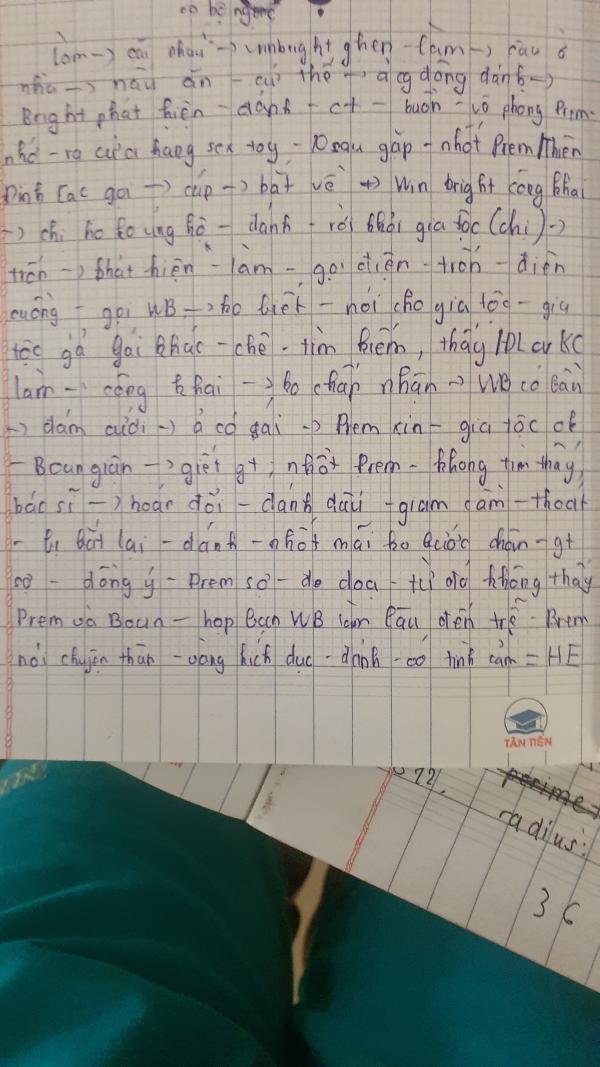 có bộ
làm -> cãi nhau -> winbright ghen - làm -> câu ở
nhà -> nấu ăn - cứ thế -> ả cg đồng đánh ->
Bright phát hiện - đánh - ct - buồn - vô phòng Prem -
nhớ - ra cửa hàng sex toy - 10sau gặp - nhốt Prem/Thiên
Đình các gọi -> cúp -> bắt về -> Win bright công khai
-> chị ko ko ủng hộ - đánh - rời khỏi gia tộc (chị) ->
trốn -> phát hiện - làm - gọi điện - trốn - điên
cuồng - gọi WB -> ko biết - nói cho gia tộc - gia
tộc gả gái khác - chê - tìm kiếm, thấy
làm - công khai -> ko chấp nhận -> WB có bầu
-> đám cưới -> ả có gái -> Prem xin - gia tộc ok
- Boun giận -> giết gt, nhốt Prem - không tìm thấy,
bác sĩ -> hoán đổi - đánh dấu - giam cầm - thoát
- bị bắt lại - đánh - nhốt mãi ko bước chân - gt
sợ - đồng ý - Prem sợ - đe dọa - từ đó không thấy
Prem và Boun - họp bạn WB làm lâu đến trễ - Brem
nói chuyện thân - vòng kích dục - đánh - có tình cảm = HE
TÂN TIẾN
22.
perime
radius:
36